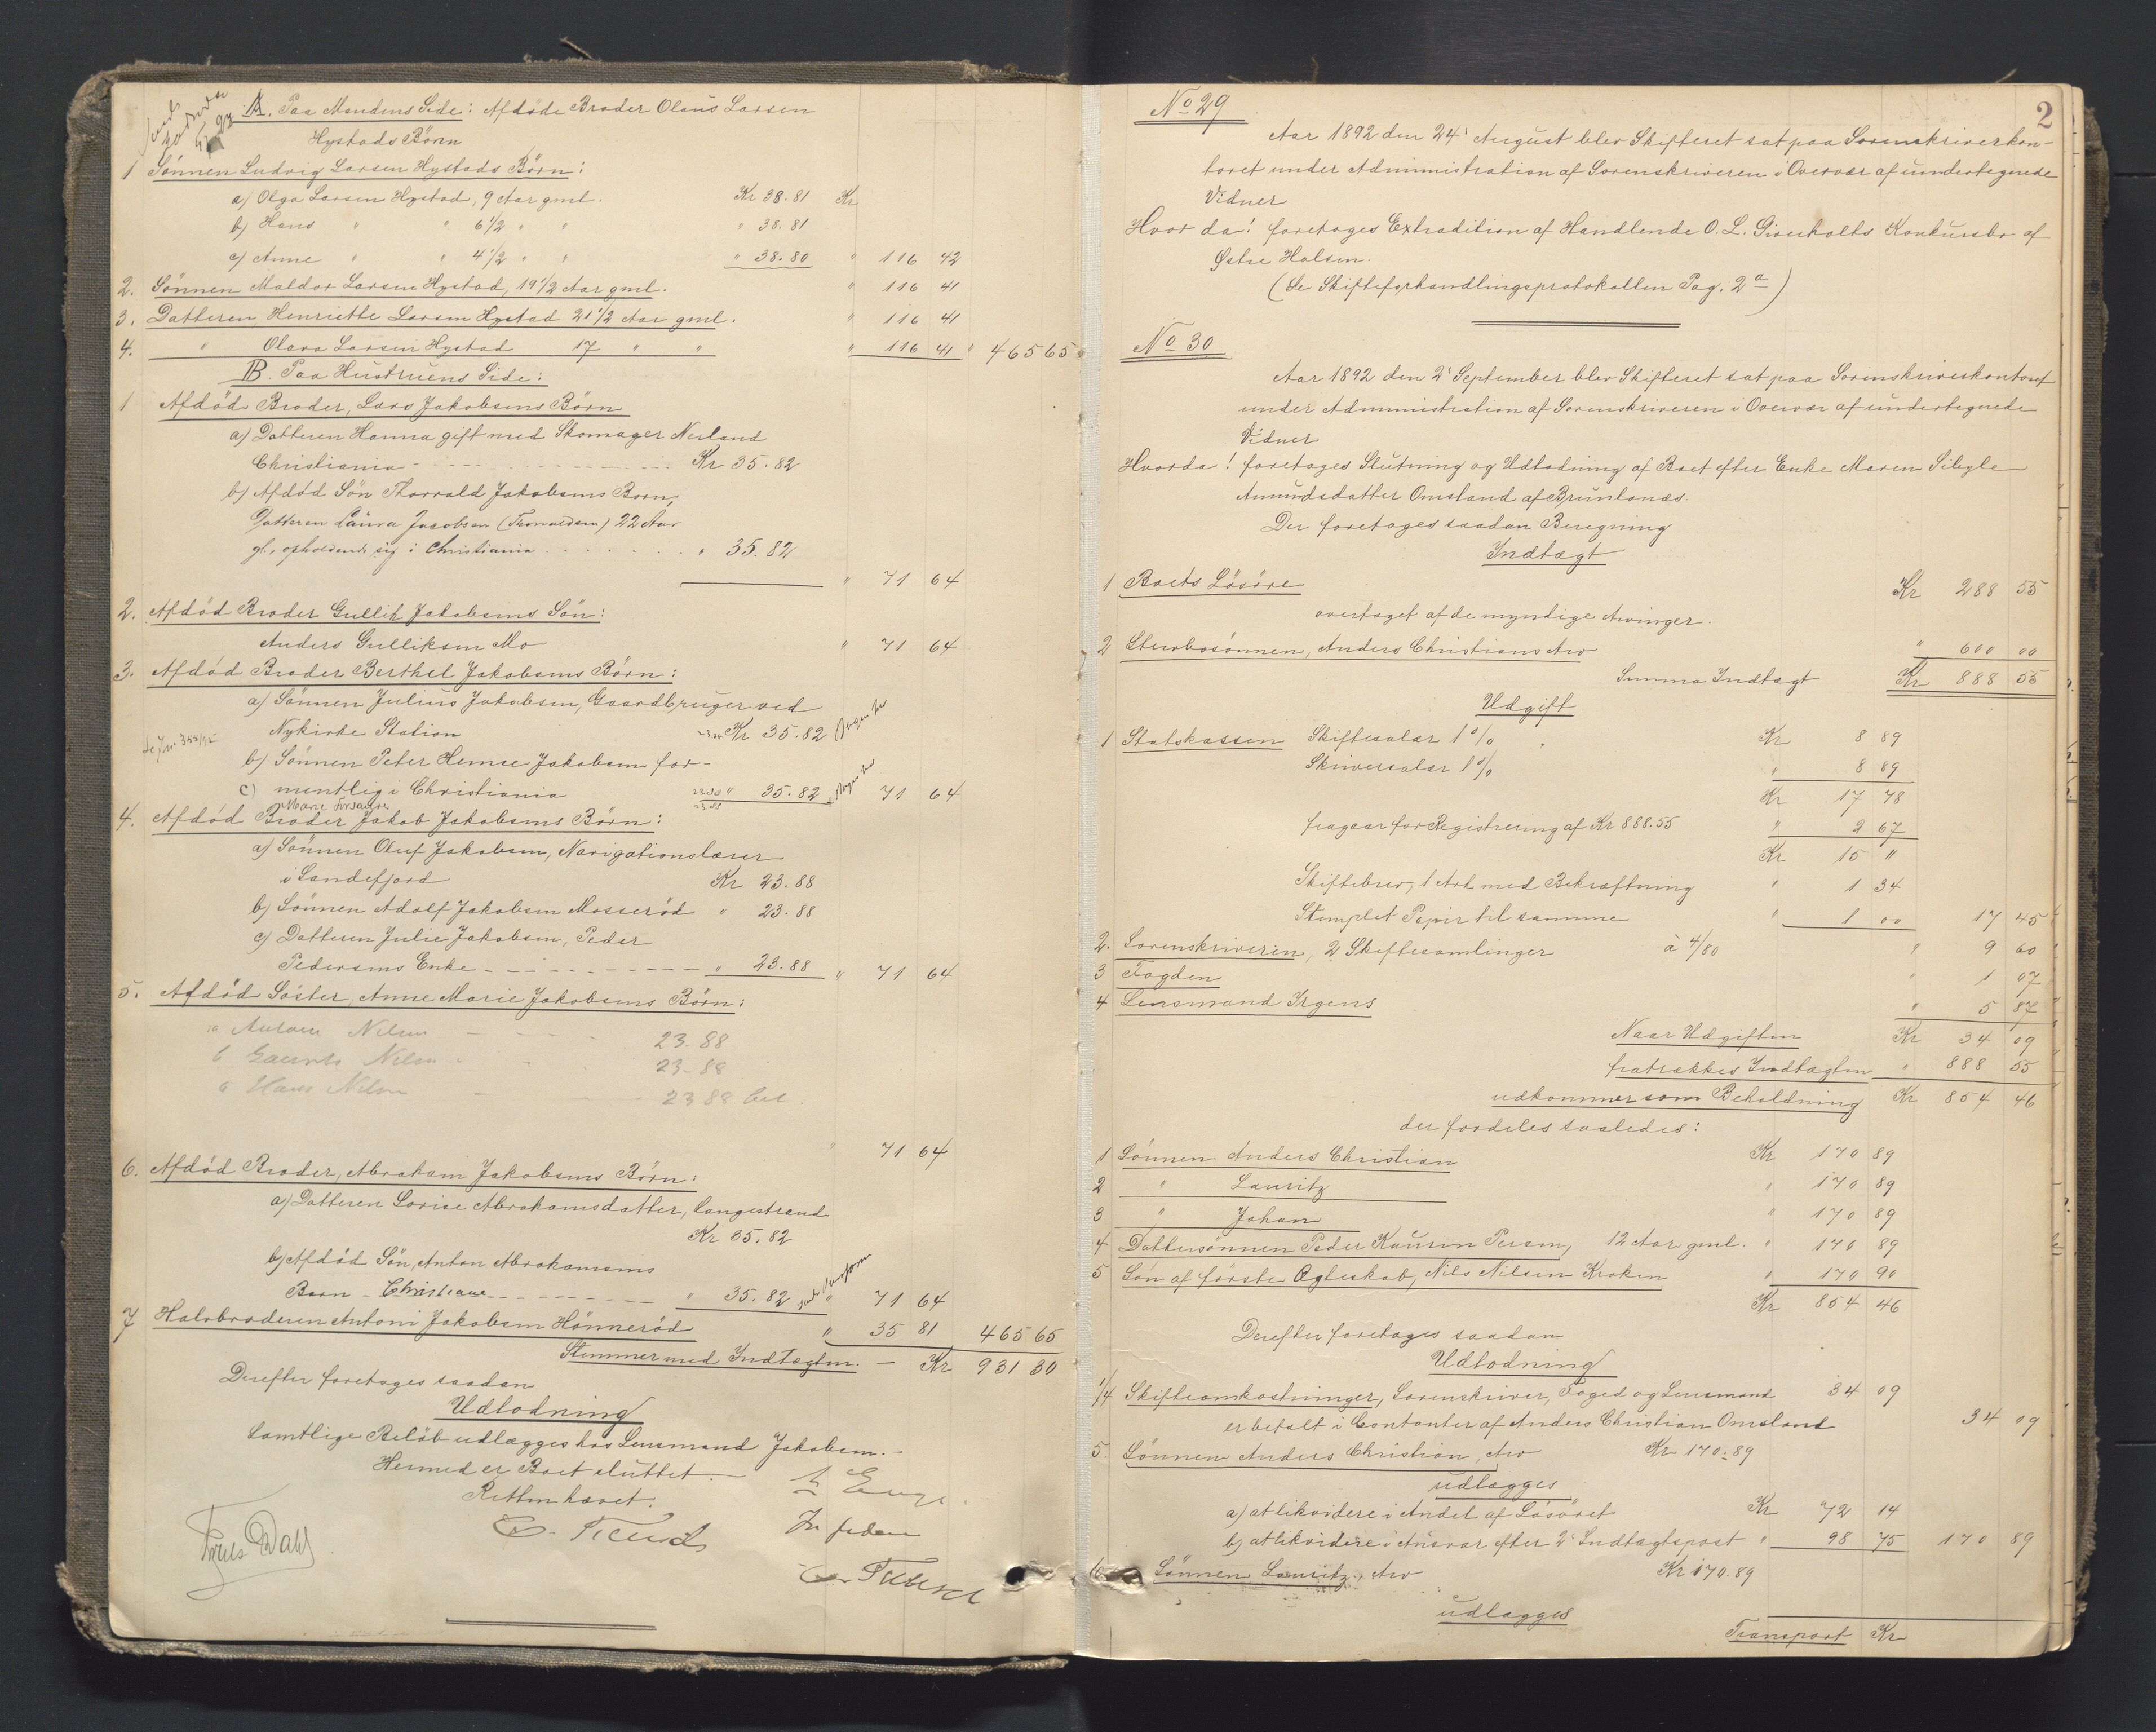 A. Paa Mandens Side: Afdøde Broder Olaus Larsen
Hystads Børn
1 Sønnen Ludvig Larsen Hystads Børn:
a) Olga Larsen Hystad, 9 Aar gml. Kr 38.81 Kr
b) Hans " " 6 1/2 " " " 38.81
c) Anne " " 4 1/2 " " " 38.80 " 116 42
2. Sønnen Haldor Larsen Hystad, 19 1/2 Aar gml. " 116 41
3. Datteren Henriette Larsen Hystad 21 1/2 Aar gml. " 116 41
4. " Olava Larsen Hystad 17 " " " 116 41 " 465 65
B. Paa Hustruens Side:
1 Afdød Broder, Lars Jakobsens Børn
a) Datteren Hanna gift med Skomager Nerland
Christiania Kr 35.82
b) Afdød Søn Thorvald Jakobsens Barn,
Datteren Laura Jacobsen (Thorvaldsen) 22 Aar
gl., opholdende sig i Christiania " 35.82
" 71 64
2. Afdød Broder Gullik Jakobsens Søn:
Anders Gulliksen Mo " 71 64
3. Afdød Broder Berthel Jakobsens Børn:
a) Sønnen Julius Jakobsen, Gaardbruger ved
Nykirke Station Kr 35.82
b) Sønnen Peter Hemse Jakobsen for-
c) mentlig i Christiania 23.88 " 35.82 71 64
23.88
Marie
4. Afdød Broder Jakob Jakobsens Børn:
a) Sønnen Oluf Jakobsen, Navigationslærer
i Sandefjord Kr 23.88
b) Sønnen Adolf Jakobsen Mosserød " 23.88
c) Datteren Julie Jakobsen, Peder
Pedersens Enke " 23.88 " 71 64
5. Afdød Søster, Anne Marie Jakobsens Børn:
a Nilsen 23.88
b Nilsen 23.88
c Hans Nilsen 23 88 bet.
" 71 64
6. Afdød Broder, Abraham Jakobsens Børn:
a) Datteren Lovise Abrahamsdatter, Langestrand
Kr 35.82
b) Afdød Søn, Anton Abrahamsens
Barn - Christiane " 35.82 " 71 64
7 Halvbroderen Antoni Jakobsen Hønnerød " 35 81 465 65
Stemmer med Indtægten. - Kr 931 30
Derefter foretages saadan
Udlodning
Samtlige Beløb udlægges hos Lensmand Jakobsen.-
Hermed er Boet sluttet.
Retten hævet.
Dahl
No 29
2
Aar 1892 den 24' August blev Skifteret sat paa Sorenskriverkon-
toret under Administration af Sorenskriveren i Overvær af undertegnede
Vidner
Hvorda! foretages Extradition af Handlende O. L. Giverholts Konkursbo af
Østre Halsen.
(Se Skifteforhandlingsprotokollen Pag. 2a)
No 30
Aar 1892 den 2' September blev Skifteret sat paa Sorenskriverkontoret
under Administration af Sorenskriveren i Overvær af undertegnede
Vidner
Hvorda! foretages Slutning og Udlodning af Boet efter Enke Maren Sibylle
Amundsdatter Omsland af Brunlanæs.
Der foretages saadan Beregning
Indtægt
1 Boets Løsøre Kr 288 55
overtaget af de myndige Arvinger.
2 Stervbosønnen, Anders Christians Arv " 600 00
Summa Indtægt Kr 888 55
Udgift
1 Statskassen Skiftesalær 1% Kr 8 89
Skriversalær 1% " 8 89
Kr 17 78
fragaar for Registrering af Kr 888.55 " 2 67
Kr 15 "
Skiftebrev, 1 Ark med Bekræftning " 1 34
Stemplet Papir til samme " 1 00 17 45
2. Sorenskriveren, 2 Skiftesamlinger à 4/80 " 9 60
3 Fogden " 1 07
4 Lensmand Irgens " 5 87
Naar Udgiften Kr 34 09
fratrækkes Indtægten " 888 55
udkommer som Beholdning Kr 854 46
der fordeles saaledes:
1 Sønnen Anders Christian Kr 170 89
2 " Lauritz " 170 89
3 " Johan " 170 89
4 Dattersønnen Peder Kaurin Persen, 12 Aar gml. " 170 89
5 Søn af første Ægteskab, Nils Nilsen Kroken " 170 90
Kr 854 46
Derefter foretages saadan
Udlodning
1/4 Skifteomkostninger, Sorenskriver, Foged og Lensmand 34 09
er betalt i Contanter af Anders Christian Omsland 34 09
5. Sønnen Anders Christian, Arv Kr 170.89
udlægges
a) at likvidere i Andel af Løsøret Kr 72 14
b) at likvidere i Ansvar efter 2' Indtægtspost " 98 75 170 89
6 Sønnen Lauritz, Arv Kr 170.89
udlægges
Transport Kr